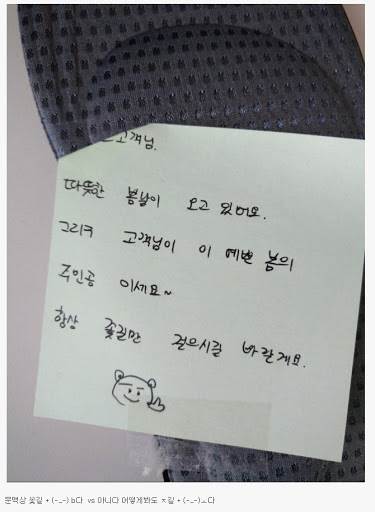 고객님.
따뜻한 봄날이 오고 있어요.
그리구 고객님이 이 예쁜 봄의
주인공 이세요~
항상 꽃길만 걸으시길 바랄게요.
문맥상 꽃길 + (-_-) b다 vs 아니다 어떻게봐도 ㅈ길 + (-_-)ㅗ다